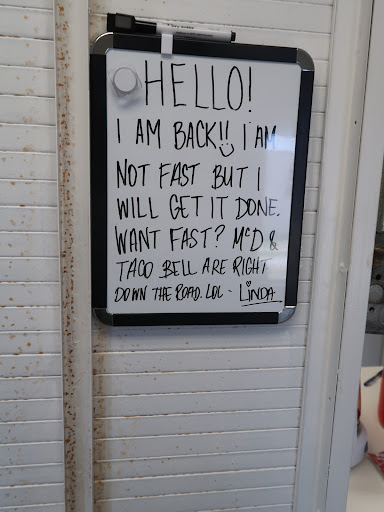 HELLO!
I AM BACK!! I AM
NOT FAST BUT I
WILL GET IT DONE.
WANT FAST? McD &
TACO BELL ARE RIGHT
DOWN THE ROAD. LOL - LINDA